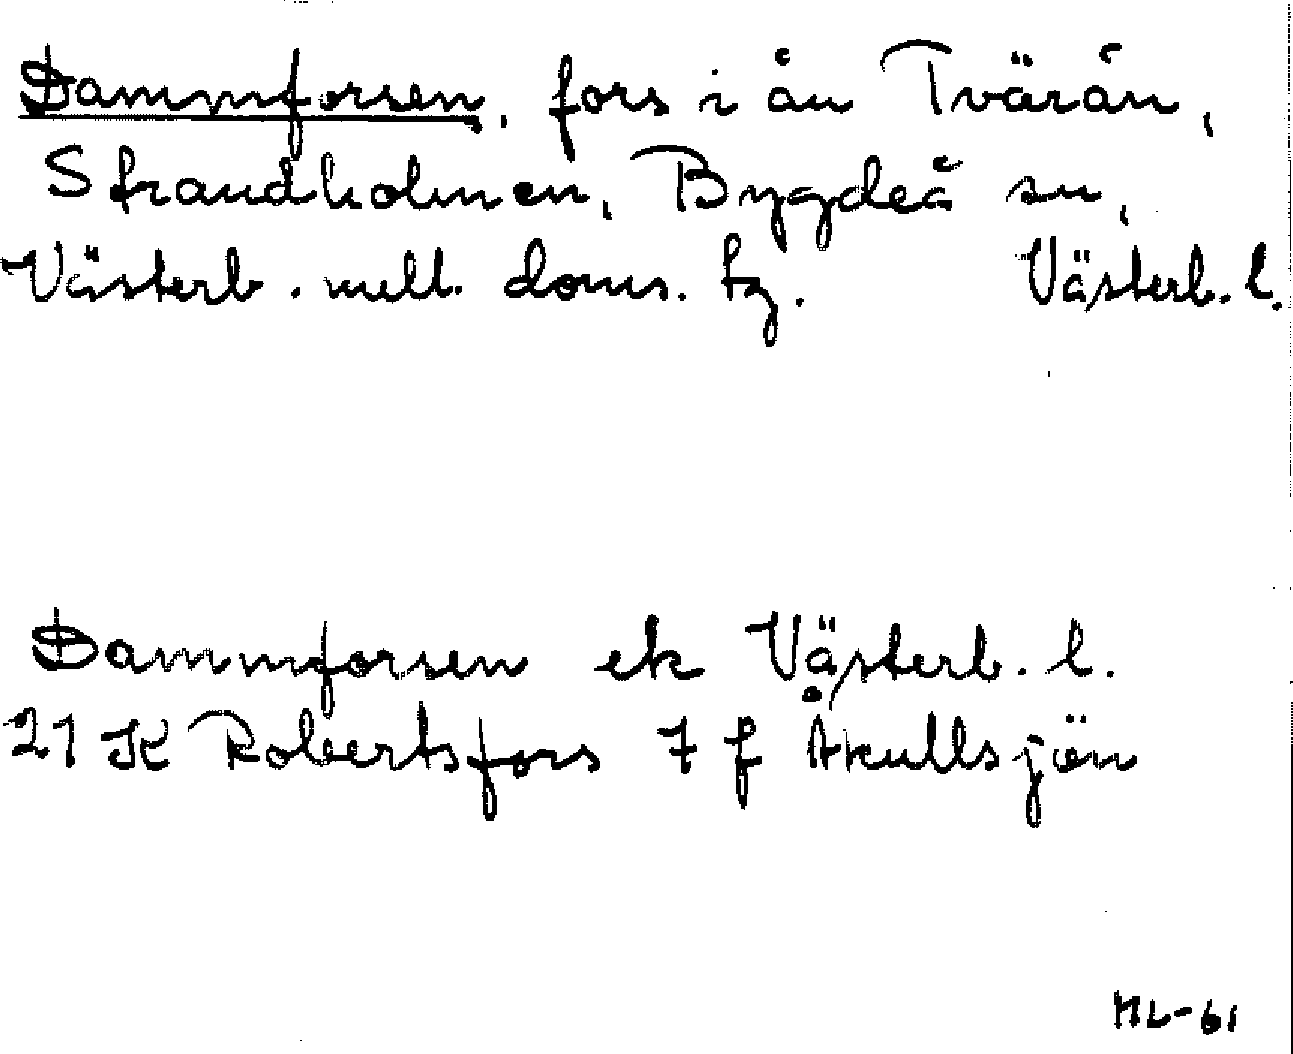 Dammforsen, fors i ån Tvärån,
Strandholmen, Bygdeå sn,
Västerb. mell. doms. tg. Västerb. l.
Dammforsen ek Västerb. l.
21 K Robertsfors 7 f Åkullsjön
HL-61